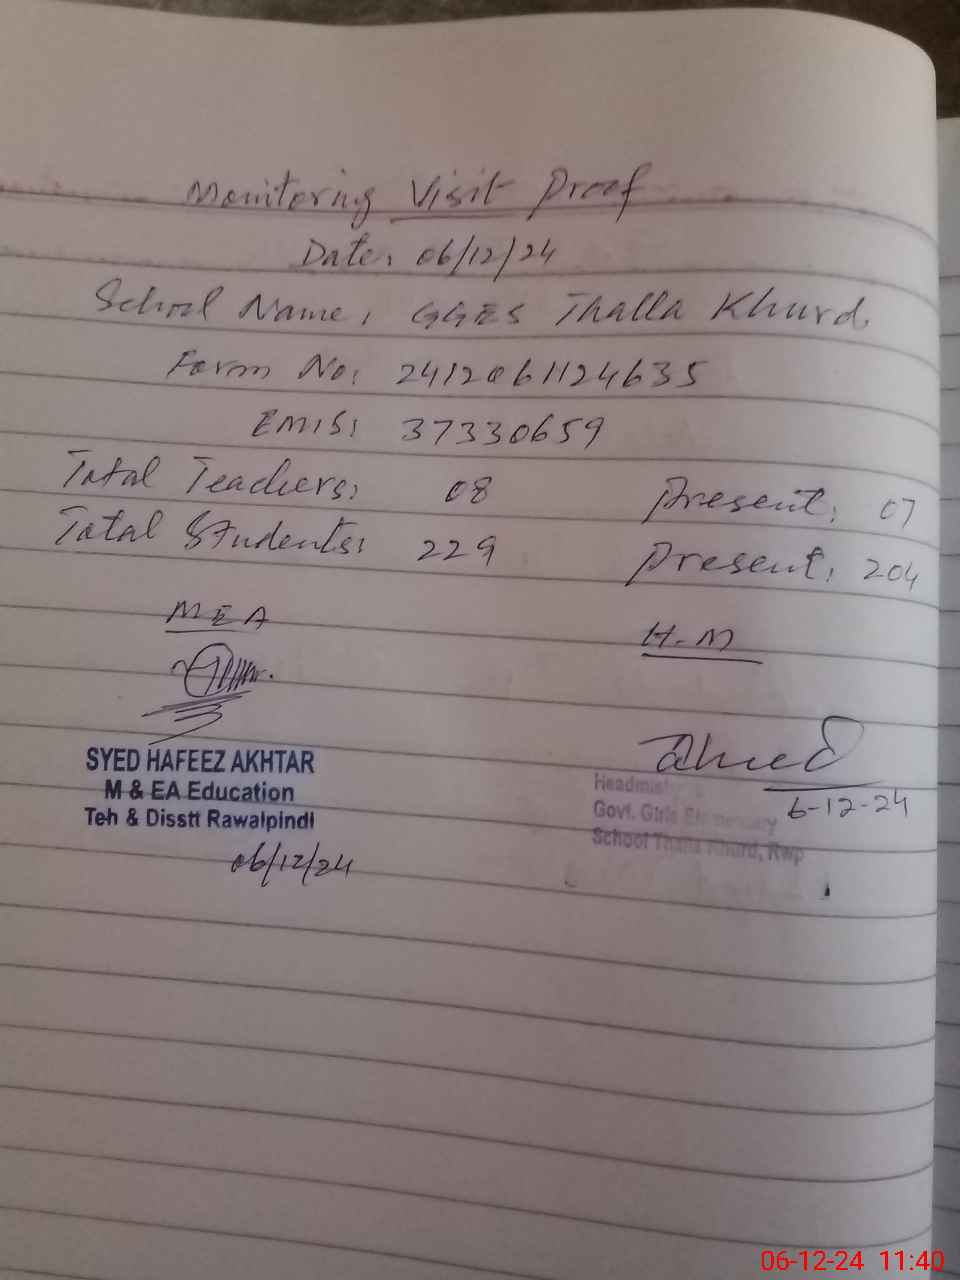 Monitoring Visit Proof
Date: 06/12/24
School Name: GGES Thalla Khurd.
Form No: 2412061124635
EMIS: 37330659
Total Teachers: 08 Present: 07
Total Students: 229 Present: 204
MEA
H.M
SYED HAFEEZ AKHTAR
M & EA Education
Teh & Disstt Rawalpindi
06/12/24
6-12-24
Govt. Girls Elementary
School Thalla Khurd, Rwp
06-12-24 11:40